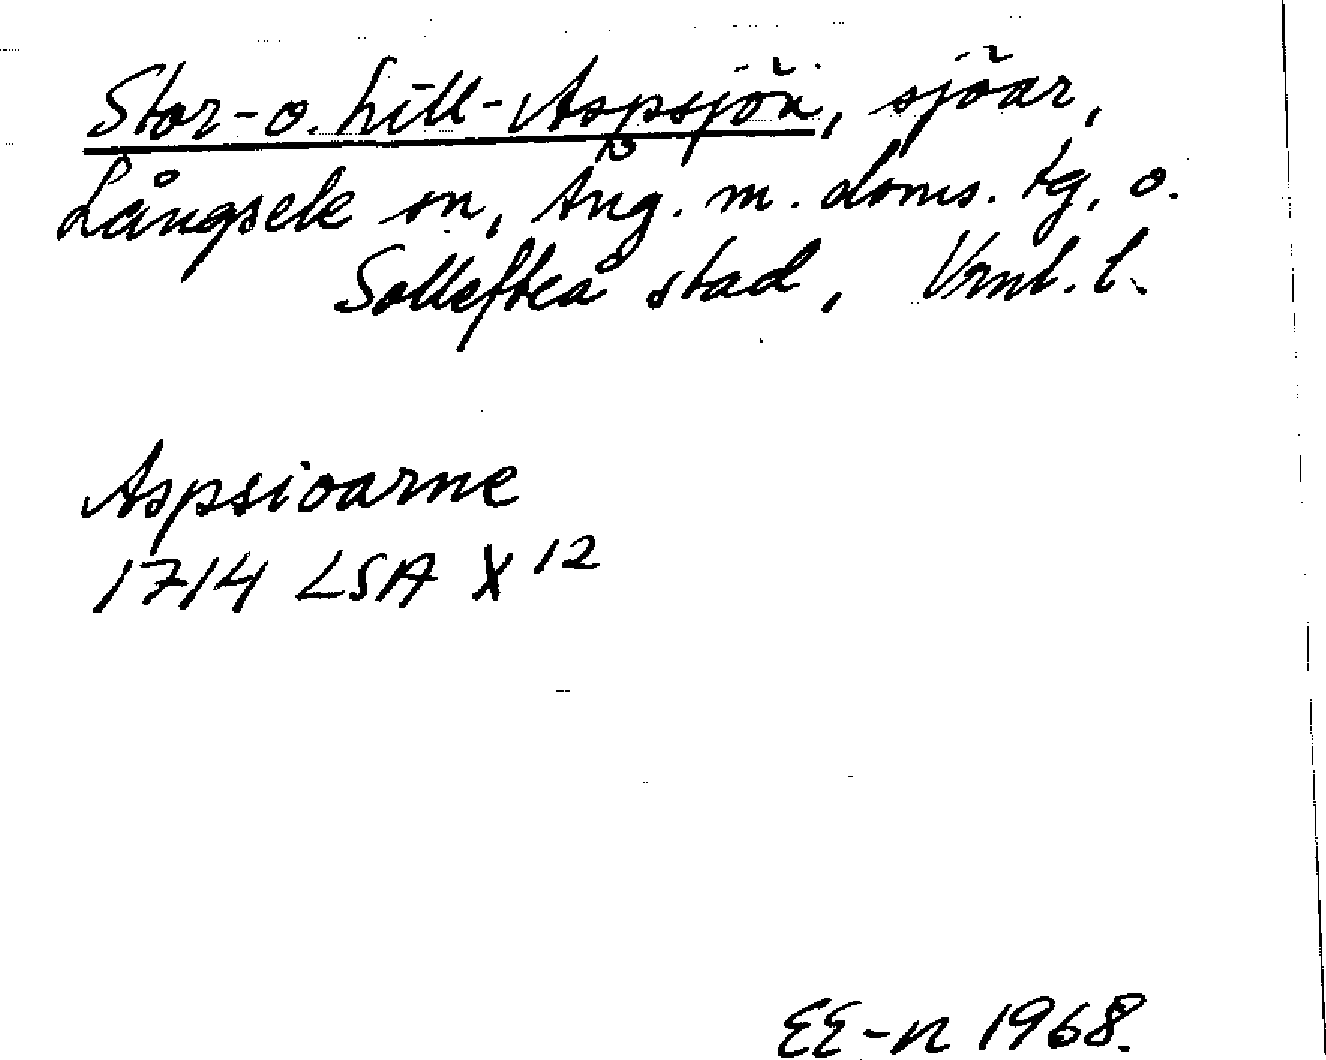 Stor- o. Lill-Aspsjön, sjöar,
Långsele sn, Ång. m. doms. tg, o.
Sollefteå stad, Vrnl. l.
Aspsioarne
1714 LSA X 12
EE-n 1968.